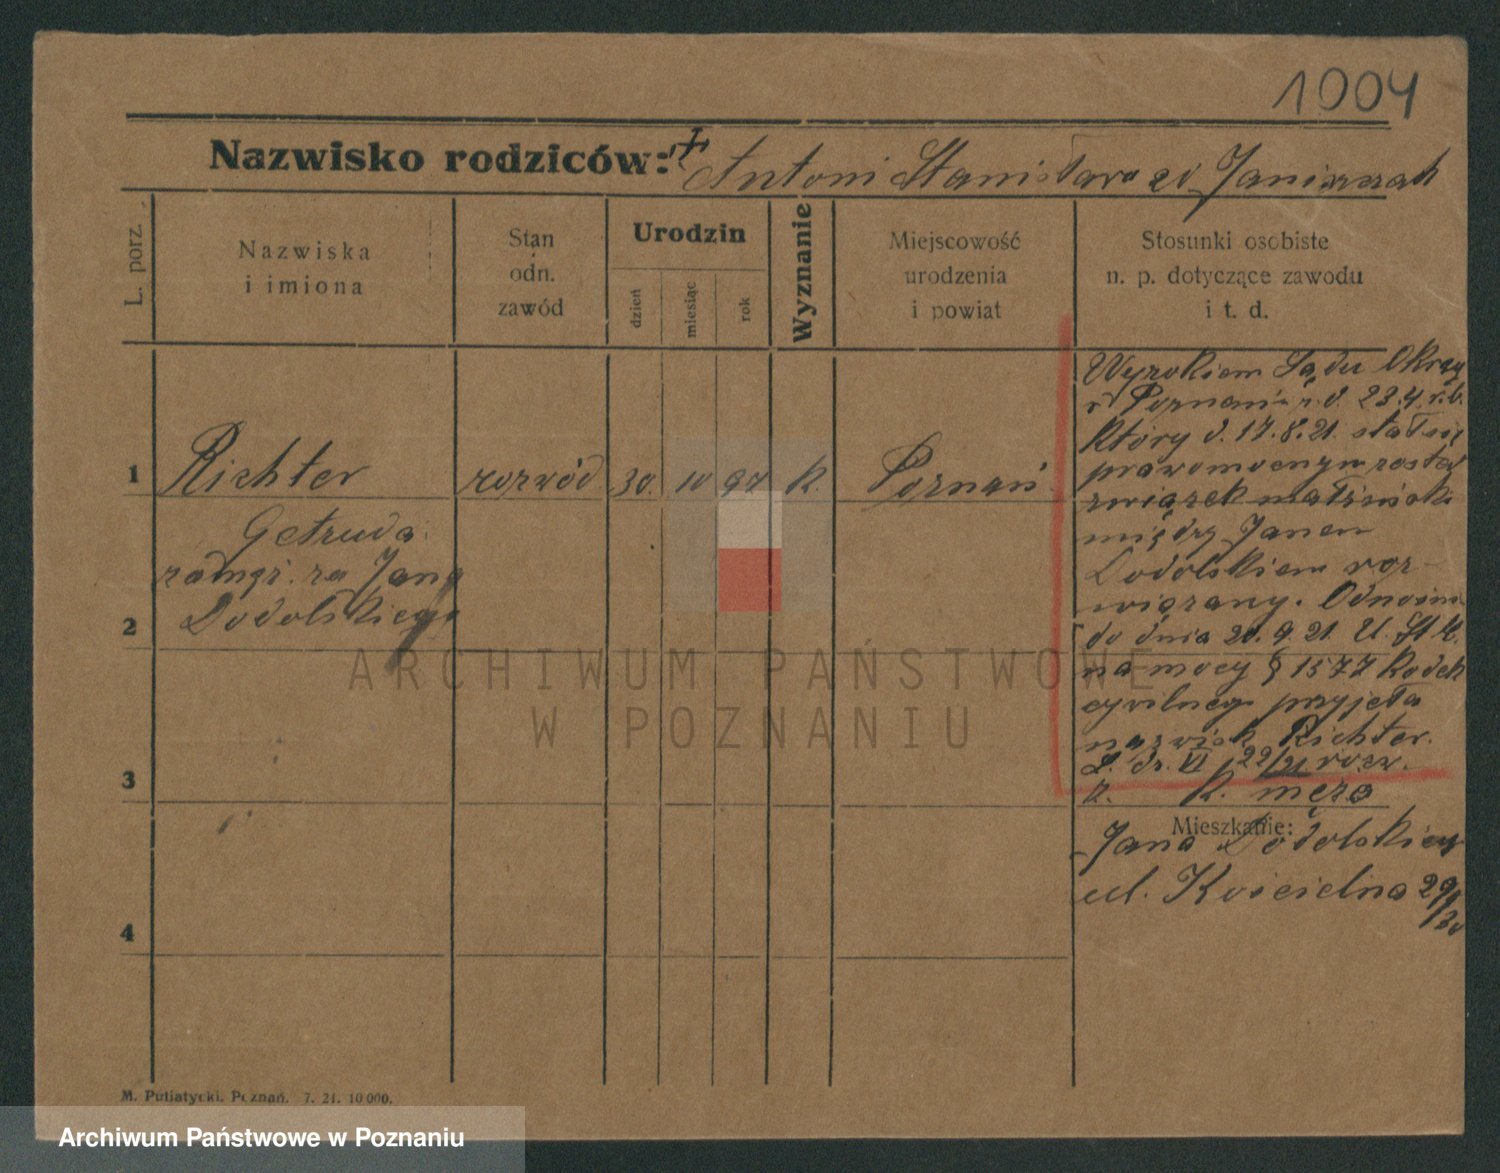 1004
Nazwisko rodziców: + Antoni Stanisława zd Janiszczak
L. porz.
Nazwiska
i imiona
Stan
odn.
zawód
Urodzin
dzień
miesiąc
rok
Wyznanie
Miejscowość
urodzenia
i powiat
Stosunki osobiste
n. p. dotyczące zawodu
i t. d.
1
Richter
rozwód
30.
10
97
k.
Poznań
Getruda
zamęż. za Jana
2
Dodolskiego
3
4
Wyrokiem Sądu Okręg
w Poznaniu z. d. 23.4. r.b.
który d. 17.8.21. stał się
prawomocnym został
związek małżeński
między Janem
Dodolskiem roz-
wiązany. Odnośn.
do dnia 20.9.21. U. St. C.
na mocy § 1577 Kodek
cywilnego przyjęła
nazwisk Richter.
L. dz. VI 22/21 rozw.
z. K. męża
Mieszkanie:
Jana Dodolskieg
ul. Kościelna 29
M. Putiatycki. Poznań. 7. 21. 10 000.
ARCHIWUM PAŃSTWOWE
W POZNANIU
Archiwum Państwowe w Poznaniu